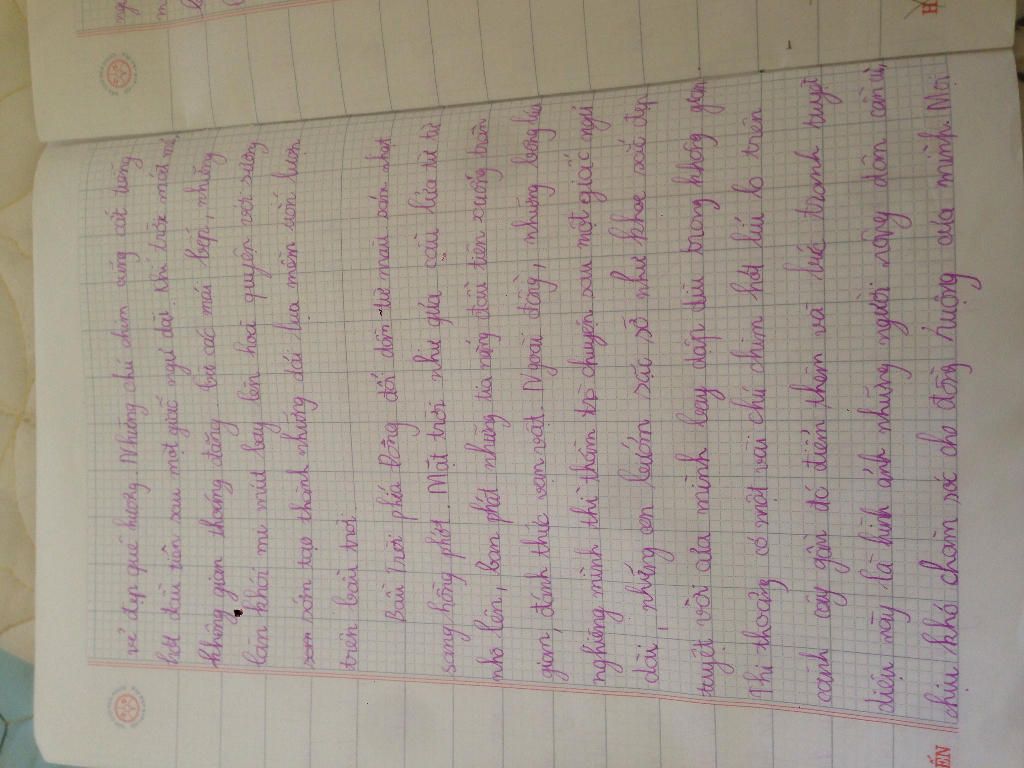 vẻ đẹp quê hương. Những chú chim cũng cất tiếng
hót đầu tiên sau một giấc ngủ dài. Khi trời mới mẻ,
không gian thoáng đãng bui các mái bếp, những
làn khói mù mịt bay lên hoà quyện với sương
sớm tạo thành những dải lụa mềm uốn lượn
trên bầu trời.
Bầu trời phía đông đổi dần từ màu xám nhạt
sang hồng phớt. Mặt trời như quả cầu lửa từ từ
nhô lên, ban phát những tia nắng đầu tiên xuống trần
gian, đánh thức vạn vật. Ngoài đồng, những bông lúa
nghiêng mình thì thầm trò chuyện sau một giấc ngủ
dài, những em bướm sặc sỡ như khoe sắc đẹp
tuyệt vời của mình bay dập dìu trong không gian.
Thi thoảng có một vài chú chim hót líu lo trên
cành cây gần đó điểm thêm vẻ bức tranh tuyệt
diệu này là hình ảnh những người nông dân cần cù,
chịu khó chăm sóc cho đồng ruộng của mình. Mọi
ẾN
H